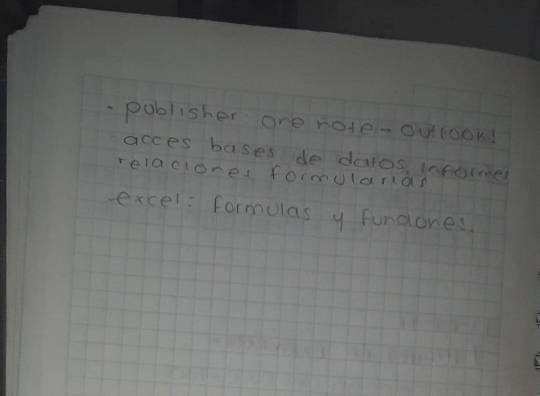 . publisher one note - outlook!
acces bases de datos, informes
relaciones formularias
-excel: formulas y funciones.